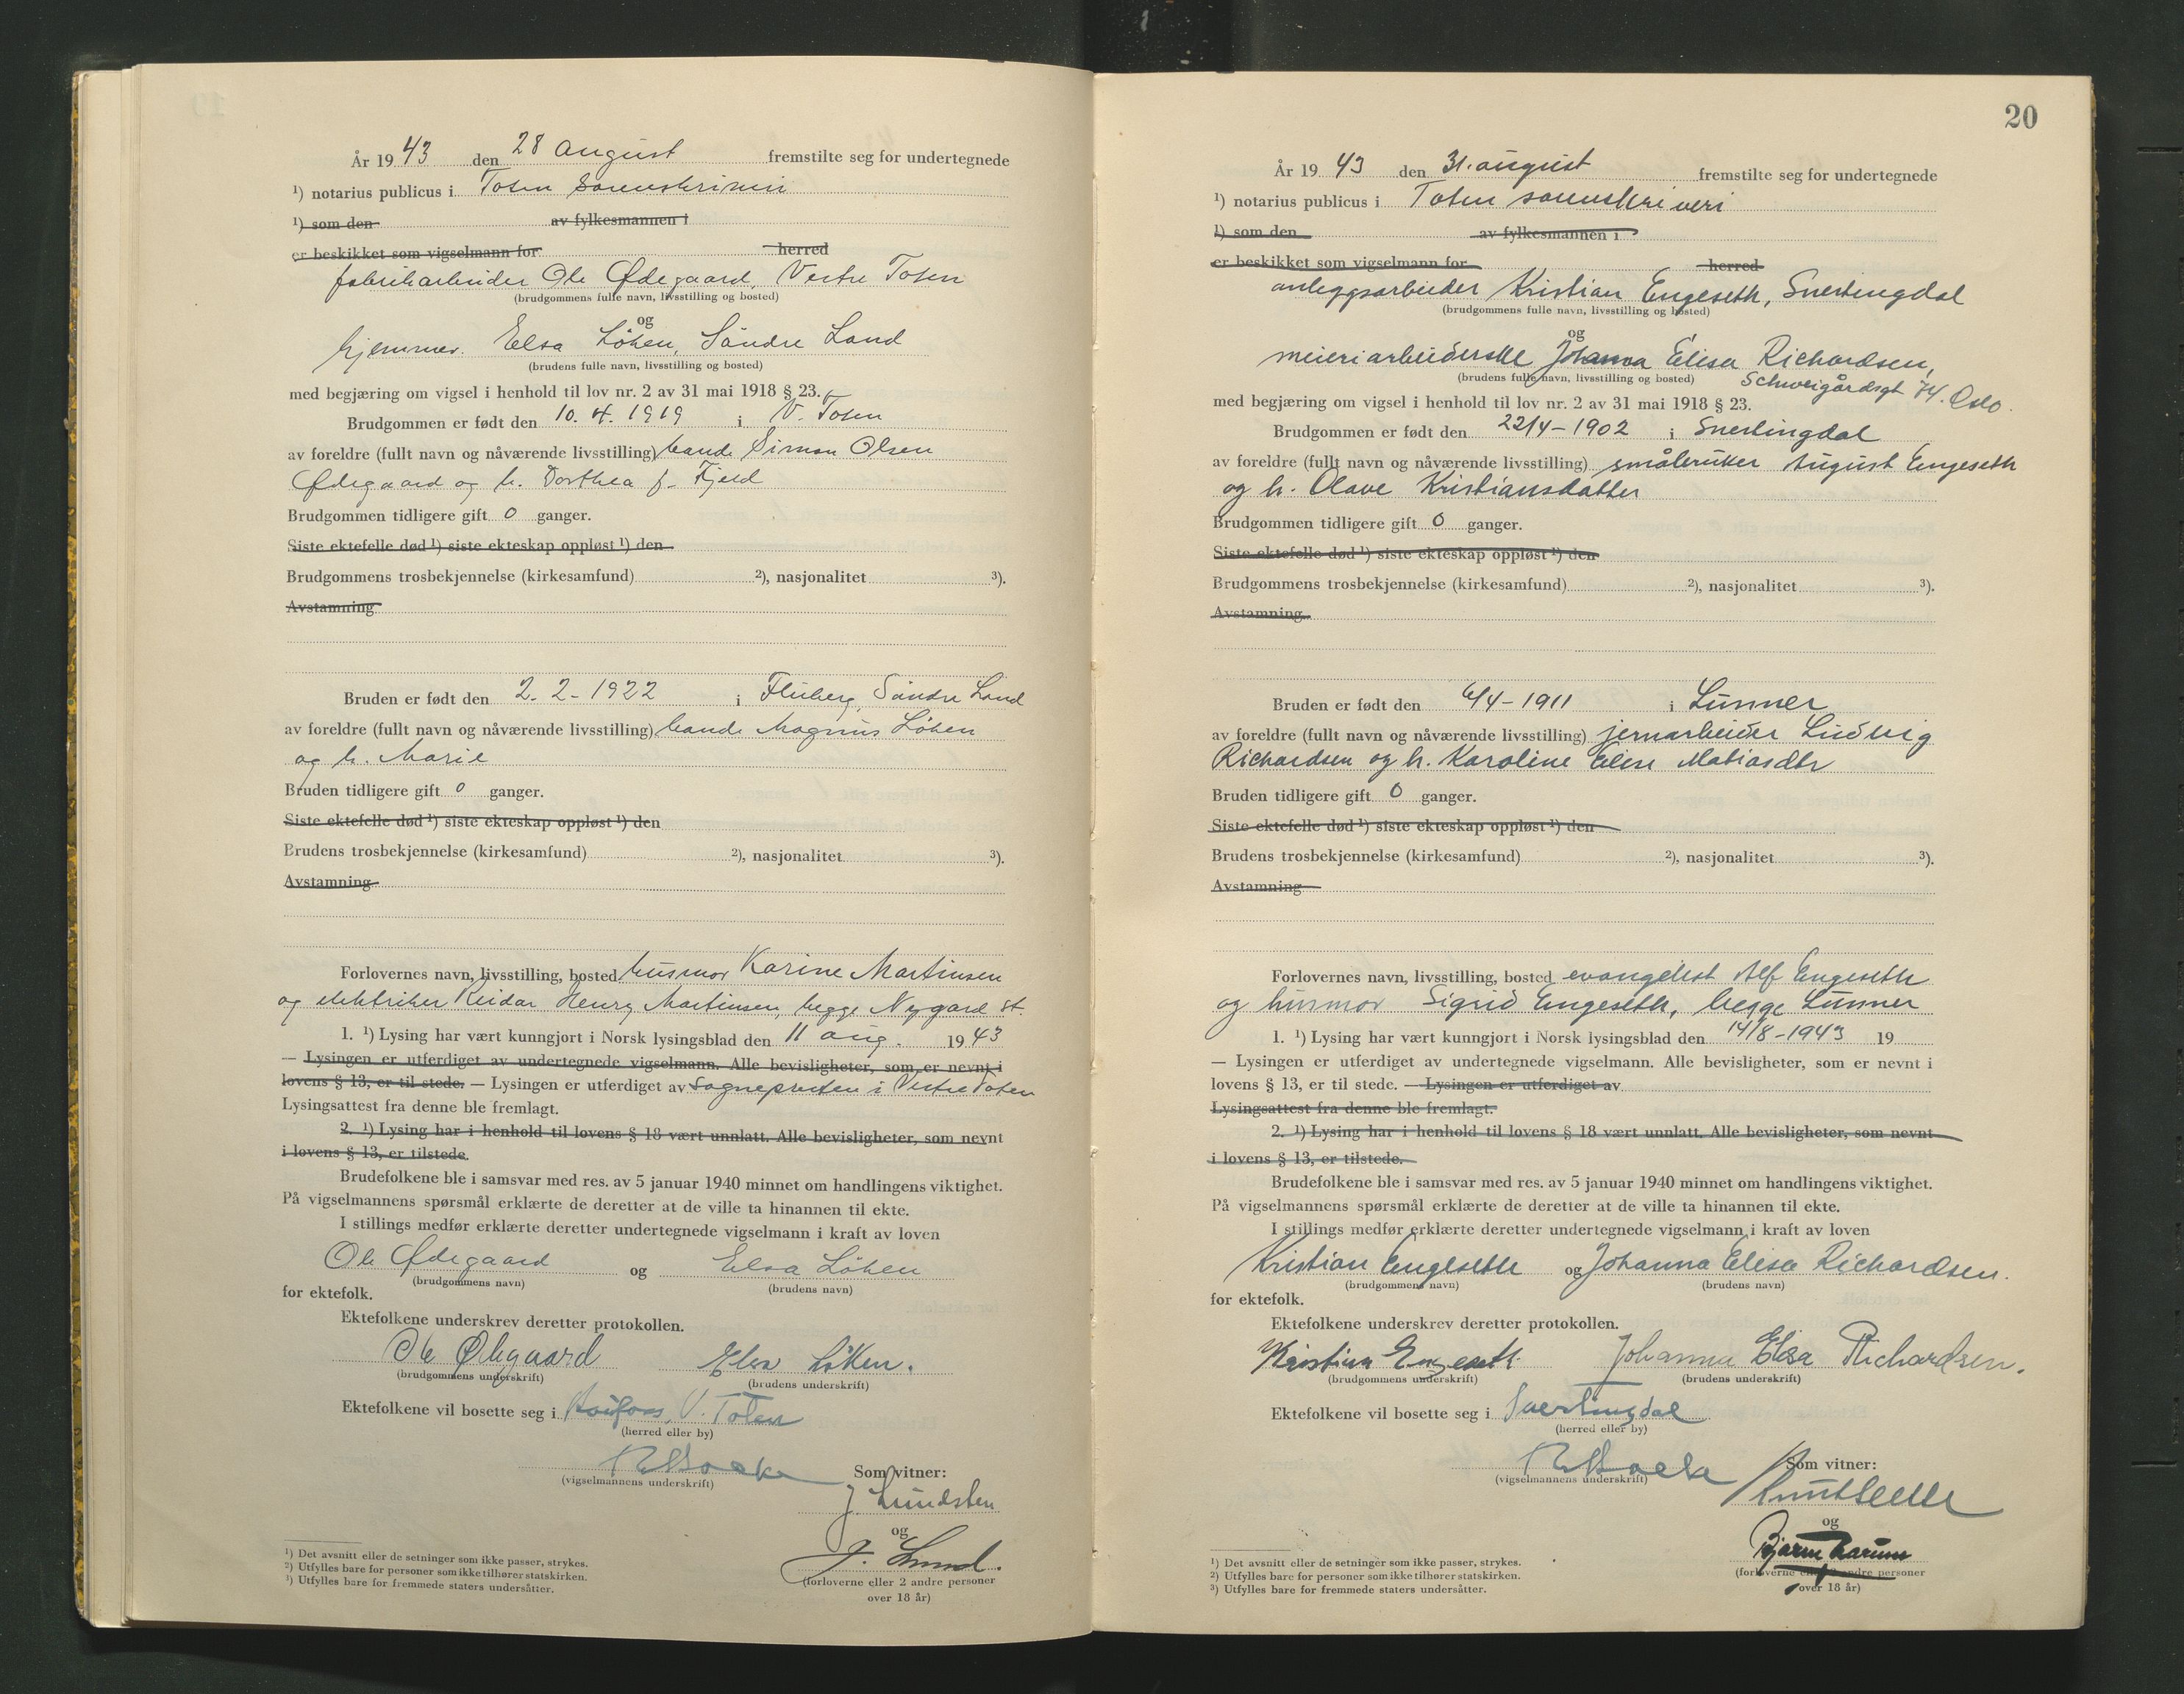 År 19 43 den 28 august fremstilte seg for undertegnede
¹) notarius publicus i Toten sorenskriveri
¹) som den av fylkesmannen i
er beskikket som vigselmann for herred
fabrikarbeider Ole Ødegaard, Vestre Toten
(brudgommens fulle navn, livsstilling og bosted)
og
hjemmev. Elsa Løken, Søndre Land
(brudens fulle navn, livsstilling og bosted)
med begjæring om vigsel i henhold til lov nr. 2 av 31 mai 1918 § 23.
Brudgommen er født den 10. 4. 1919 i V. Toten
av foreldre (fullt navn og nåværende livsstilling) bonde Simon Olsen
Ødegaard og h. Dorthea f. Fjeld
Brudgommen tidligere gift 0 ganger.
Siste ektefelle død ¹) siste ekteskap oppløst ¹) den
Brudgommens trosbekjennelse (kirkesamfund) ²), nasjonalitet ³).
Avstamning
Bruden er født den 2. 2 - 1922 i Fluberg, Søndre Land
av foreldre (fullt navn og nåværende livsstilling) bonde Magnus Løken
og h. Marie
Bruden tidligere gift 0 ganger.
Siste ektefelle død ¹) siste ekteskap oppløst ¹) den
Brudens trosbekjennelse (kirkesamfund) ²), nasjonalitet ³).
Avstamning
Forlovernes navn, livsstilling, bosted husmor Karine Martinsen
og elektriker Reidar Henry Martinsen, begge Nygard st.
1. ¹) Lysing har vært kunngjort i Norsk lysingsblad den 11 aug. 19 43
— Lysingen er utferdiget av undertegnede vigselmann. Alle bevisligheter, som er nevnt i
lovens § 13, er til stede. — Lysingen er utferdiget av sognepresten i Vestre Toten
Lysingsattest fra denne ble fremlagt.
2. ¹) Lysing har i henhold til lovens § 18 vært unnlatt. Alle bevisligheter, som nevnt
i lovens § 13, er tilstede.
Brudefolkene ble i samsvar med res. av 5 januar 1940 minnet om handlingens viktighet.
På vigselmannens spørsmål erklærte de deretter at de ville ta hinannen til ekte.
I stillings medfør erklærte deretter undertegnede vigselmann i kraft av loven
Ole Ødegaard og Elsa Løken
(brudgommens navn) (brudens navn)
for ektefolk.
Ektefolkene underskrev deretter protokollen.
Ole Ødegaard Elsa Løken.
(brudgommens underskrift) (brudens underskrift)
Ektefolkene vil bosette seg i Raufoss, V. Toten
(herred eller by)
(vigselmannens underskrift) Som vitner:
J. Lundsten
og
J. Lund.
(forloverne eller 2 andre personer
over 18 år)
¹) Det avsnitt eller de setninger som ikke passer, strykes.
²) Utfylles bare for personer som ikke tilhører statskirken.
³) Utfylles bare for fremmede staters undersåtter.
20
År 19 43 den 31. august fremstilte seg for undertegnede
¹) notarius publicus i Toten sorenskriveri
¹) som den av fylkesmannen i
er beskikket som vigselmann for herred
anleggsarbeider Kristian Engeseth, Snertingdal
(brudgommens fulle navn, livsstilling og bosted)
og
meieriarbeiderske Johanna Elisa Richardsen,
(brudens fulle navn, livsstilling og bosted) Schweigårdsgt 74. Oslo.
med begjæring om vigsel i henhold til lov nr. 2 av 31 mai 1918 § 23.
Brudgommen er født den 22/4 - 1902 i Snertingdal
av foreldre (fullt navn og nåværende livsstilling) småbruker August Engeseth
og h. Olave Kristiansdatter
Brudgommen tidligere gift 0 ganger.
Siste ektefelle død ¹) siste ekteskap oppløst ¹) den
Brudgommens trosbekjennelse (kirkesamfund) ²), nasjonalitet ³).
Avstamning
Bruden er født den 6/4 - 1911 i Lunner
av foreldre (fullt navn og nåværende livsstilling) jernarbeider Ludvig
Richardsen og h. Karoline Elise Matiasdtr
Bruden tidligere gift 0 ganger.
Siste ektefelle død ¹) siste ekteskap oppløst ¹) den
Brudens trosbekjennelse (kirkesamfund) ²), nasjonalitet ³).
Avstamning
Forlovernes navn, livsstilling, bosted evangelist Alf Engeseth
og husmor Sigrid Engeseth, begge Lunner
1. ¹) Lysing har vært kunngjort i Norsk lysingsblad den 14/8 - 1943 19
— Lysingen er utferdiget av undertegnede vigselmann. Alle bevisligheter, som er nevnt i
lovens § 13, er til stede. — Lysingen er utferdiget av
Lysingsattest fra denne ble fremlagt.
2. ¹) Lysing har i henhold til lovens § 18 vært unnlatt. Alle bevisligheter, som nevnt
i lovens § 13, er tilstede.
Brudefolkene ble i samsvar med res. av 5 januar 1940 minnet om handlingens viktighet.
På vigselmannens spørsmål erklærte de deretter at de ville ta hinannen til ekte.
I stillings medfør erklærte deretter undertegnede vigselmann i kraft av loven
Kristian Engeseth og Johanna Elisa Richardsen.
(brudgommens navn) (brudens navn)
for ektefolk.
Ektefolkene underskrev deretter protokollen.
Kristian Engeseth. Johanna Elisa Richardsen.
(brudgommens underskrift) (brudens underskrift)
Ektefolkene vil bosette seg i Snertingdal
(herred eller by)
(vigselmannens underskrift) Som vitner:
og
Bjarne
(forloverne eller 2 andre personer
over 18 år)
¹) Det avsnitt eller de setninger som ikke passer, strykes.
²) Utfylles bare for personer som ikke tilhører statskirken.
³) Utfylles bare for fremmede staters undersåtter.